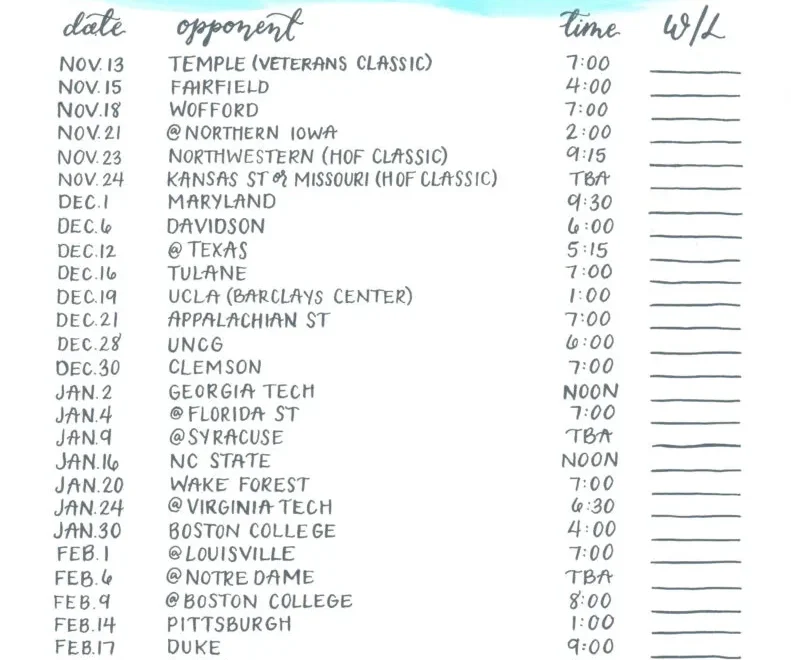 date opponent time W/L
NOV. 13 TEMPLE (VETERANS CLASSIC) 7:00
NOV. 15 FAIRFIELD 4:00
NOV. 18 WOFFORD 7:00
NOV. 21 @ NORTHERN IOWA 2:00
NOV. 23 NORTHWESTERN (HOF CLASSIC) 9:15
NOV. 24 KANSAS ST or MISSOURI (HOF CLASSIC) TBA
DEC. 1 MARYLAND 9:30
DEC. 6 DAVIDSON 6:00
DEC. 12 @ TEXAS 5:15
DEC. 16 TULANE 7:00
DEC. 19 UCLA (BARCLAYS CENTER) 1:00
DEC. 21 APPALACHIAN ST 7:00
DEC. 28 UNCG 6:00
DEC. 30 CLEMSON 7:00
JAN. 2 GEORGIA TECH NOON
JAN. 4 @ FLORIDA ST 7:00
JAN. 9 @ SYRACUSE TBA
JAN. 16 NC STATE NOON
JAN. 20 WAKE FOREST 7:00
JAN. 24 @ VIRGINIA TECH 6:30
JAN. 30 BOSTON COLLEGE 4:00
FEB. 1 @ LOUISVILLE 7:00
FEB. 6 @ NOTRE DAME TBA
FEB. 9 @ BOSTON COLLEGE 8:00
FEB. 14 PITTSBURGH 1:00
FEB. 17 DUKE 9:00